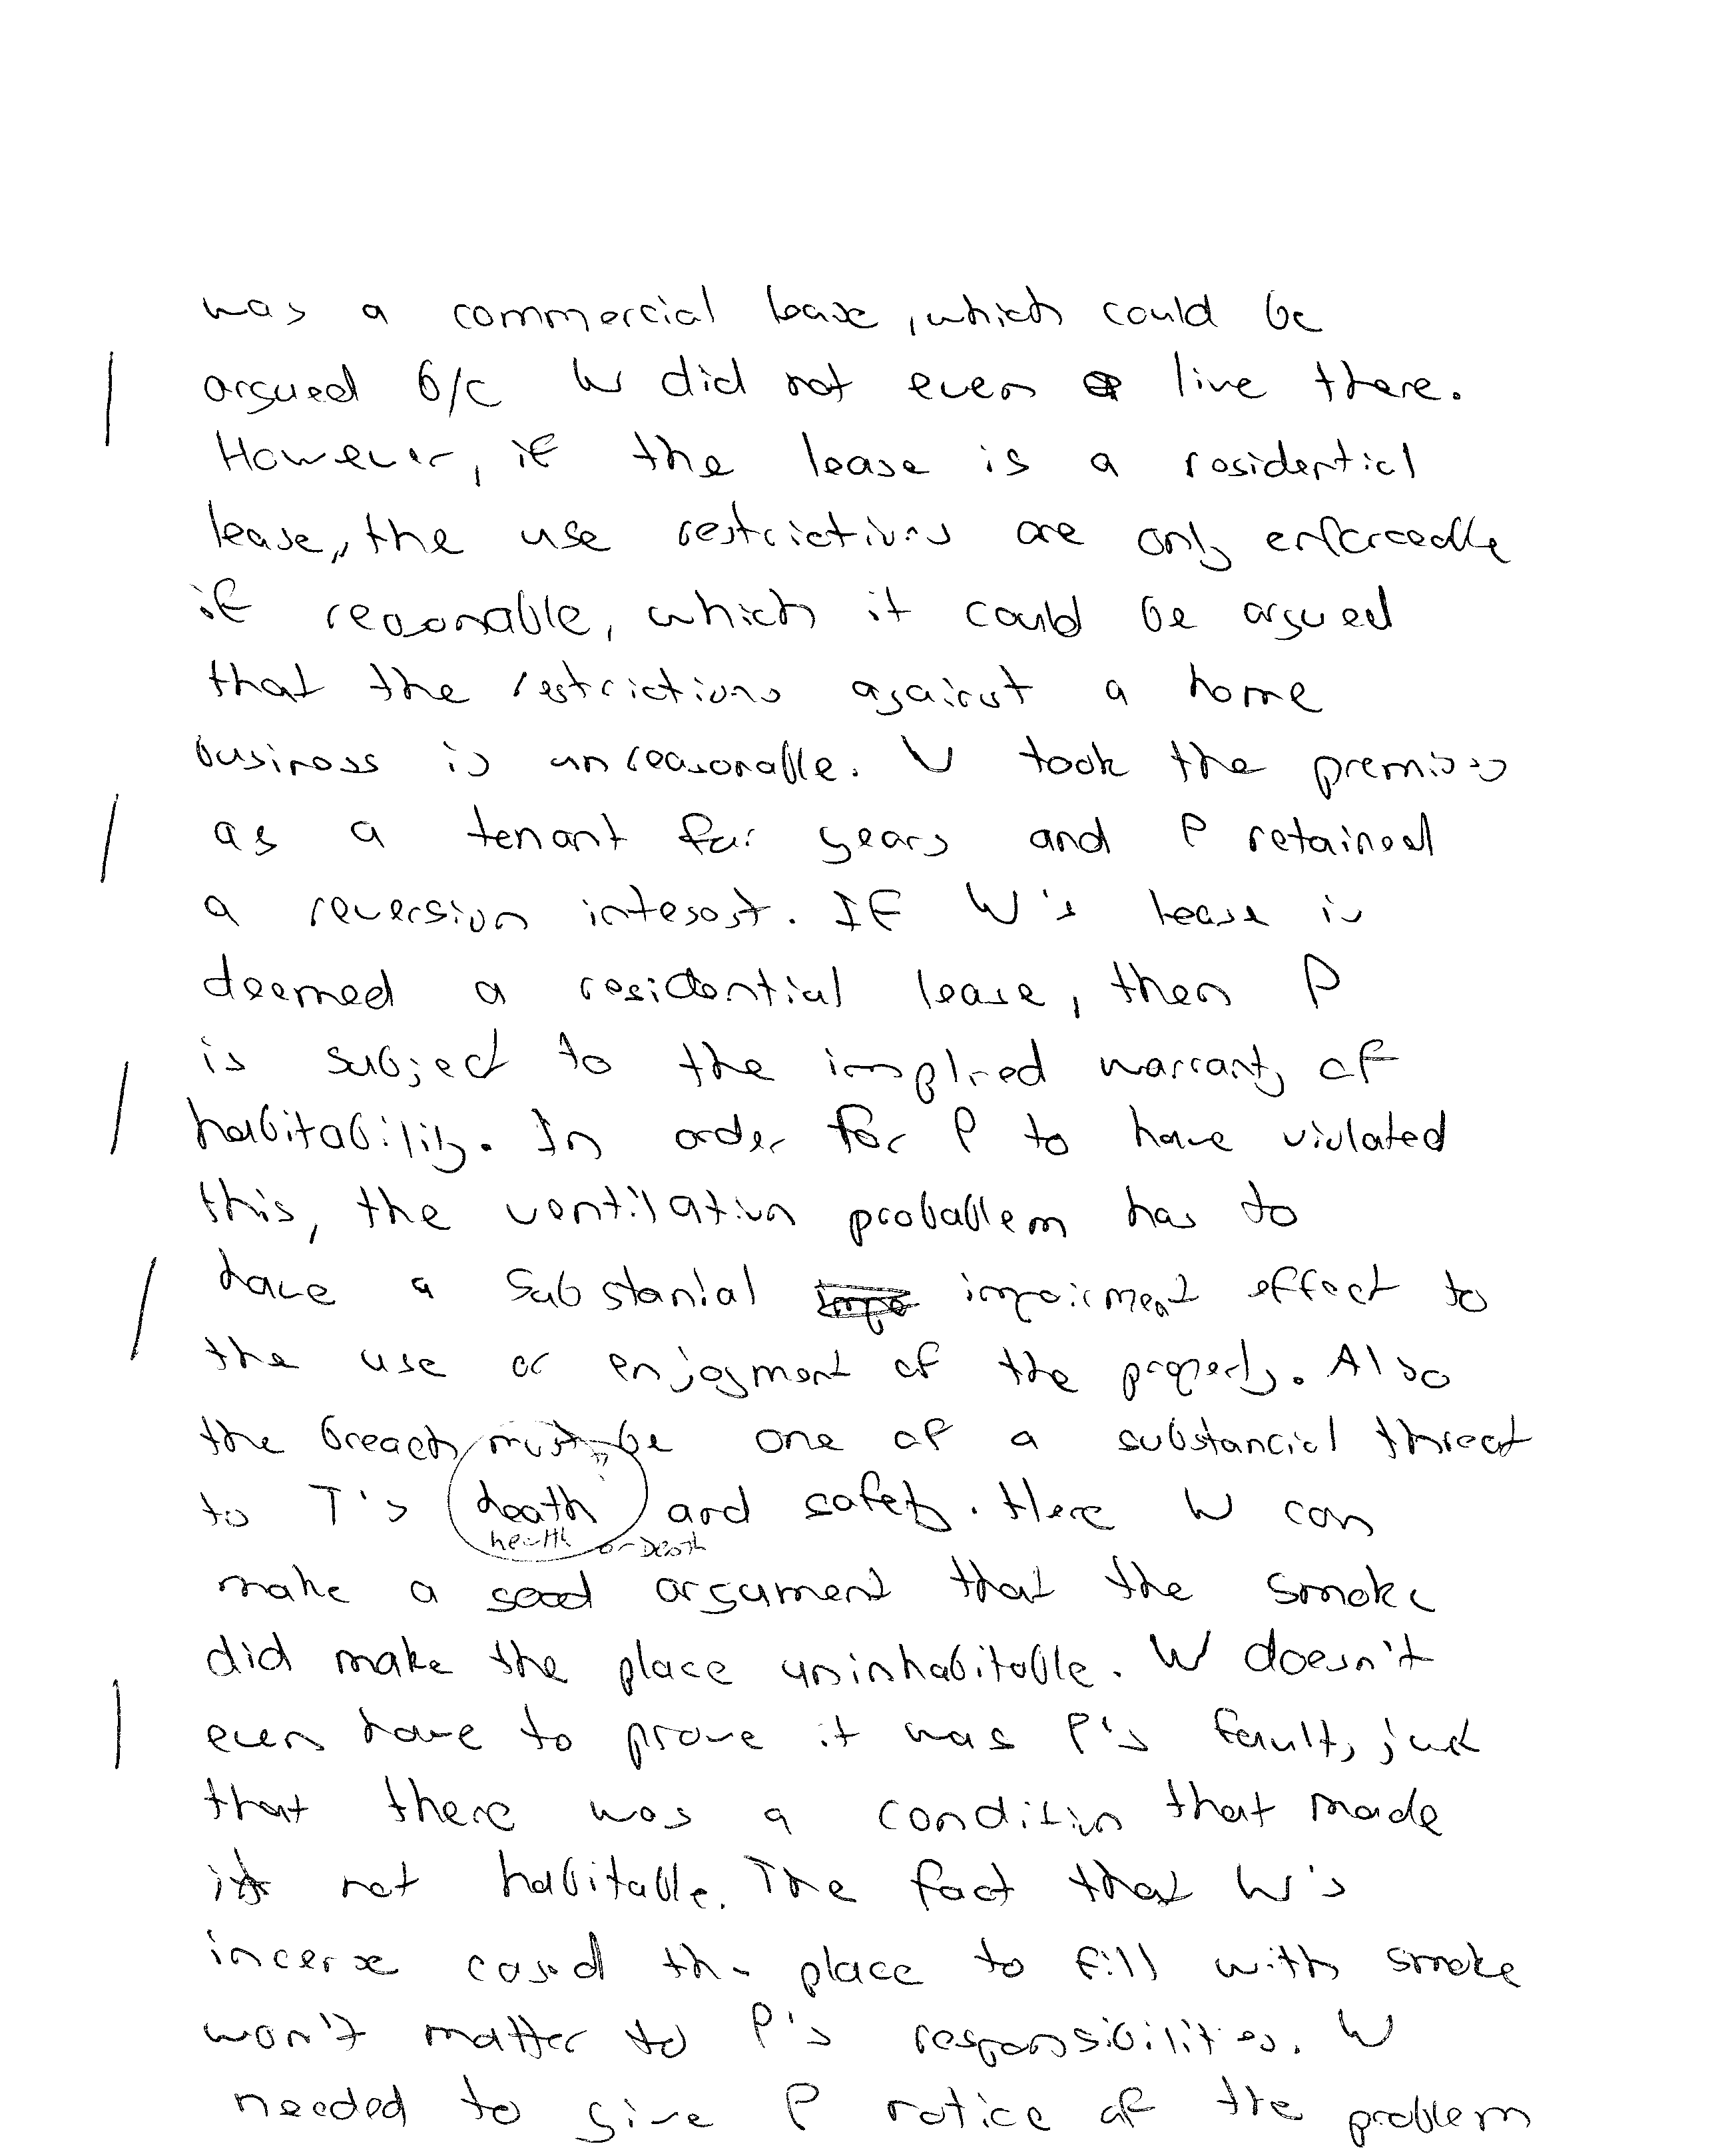 was a commercial lease, which could be
argued b/c W did not even live there.
However, if the lease is a residential
lease, the use restrictions are only enforceable
if reasonable, which it could be argued
that the restrictions against a home
business is unreasonable. W took the premises
as a tenant for years and P retained
a reversion interest. If W's lease is
deemed a residential lease, then P
is subject to the implied warranty of
habitability. In order for P to have violated
this, the ventilation probablem has to
have a substanial impairment effect to
the use or enjoyment of the property. Also
the breach must be one of a substancial threat
to T's death and safety. Here W can
health or Death
make a good argument that the smoke
did make the place uninhabitable. W doesn't
even have to prove it was P's fault, just
that there was a condition that made
it not habitable. The fact that W's
incense cased the place to fill with smoke
won't matter to P's responsibilities. W
needed to give P notice of the problem